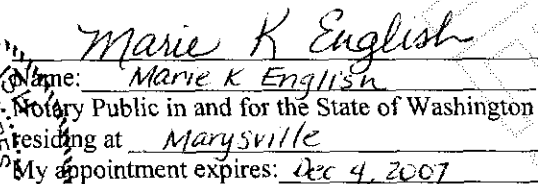 Marie K English
Name: Marie K English
Notary Public in and for the State of Washington
residing at Marysville
My appointment expires: Dec 4, 2007